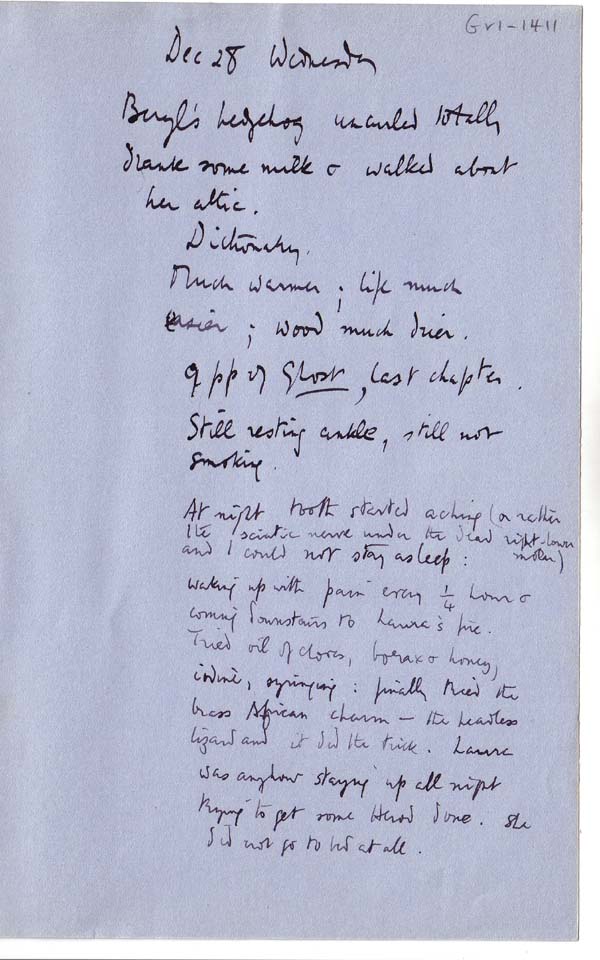 Gr1-1411
Dec 28 Wednesday
Beryl's hedgehog uncurled totally
drank some milk & walked about
her attic.
Dictionary.
Much warmer ; life much
easier ; wood much drier.
9 pp of Ghost, last chapter.
Still resting ankle, still not
smoking.
At night tooth started aching (or rather
the sciatic nerve under the dead right-lower
and I could not stay asleep : molar)
waking up with pain every ¼ hour &
coming downstairs to Laura's fire.
Tried oil of cloves, borax & honey,
iodine, syringing : finally tried the
brass African charm — the headless
lizard and it did the trick. Laura
was anyhow staying up all night
trying to get some Herod done. She
did not go to bed at all.